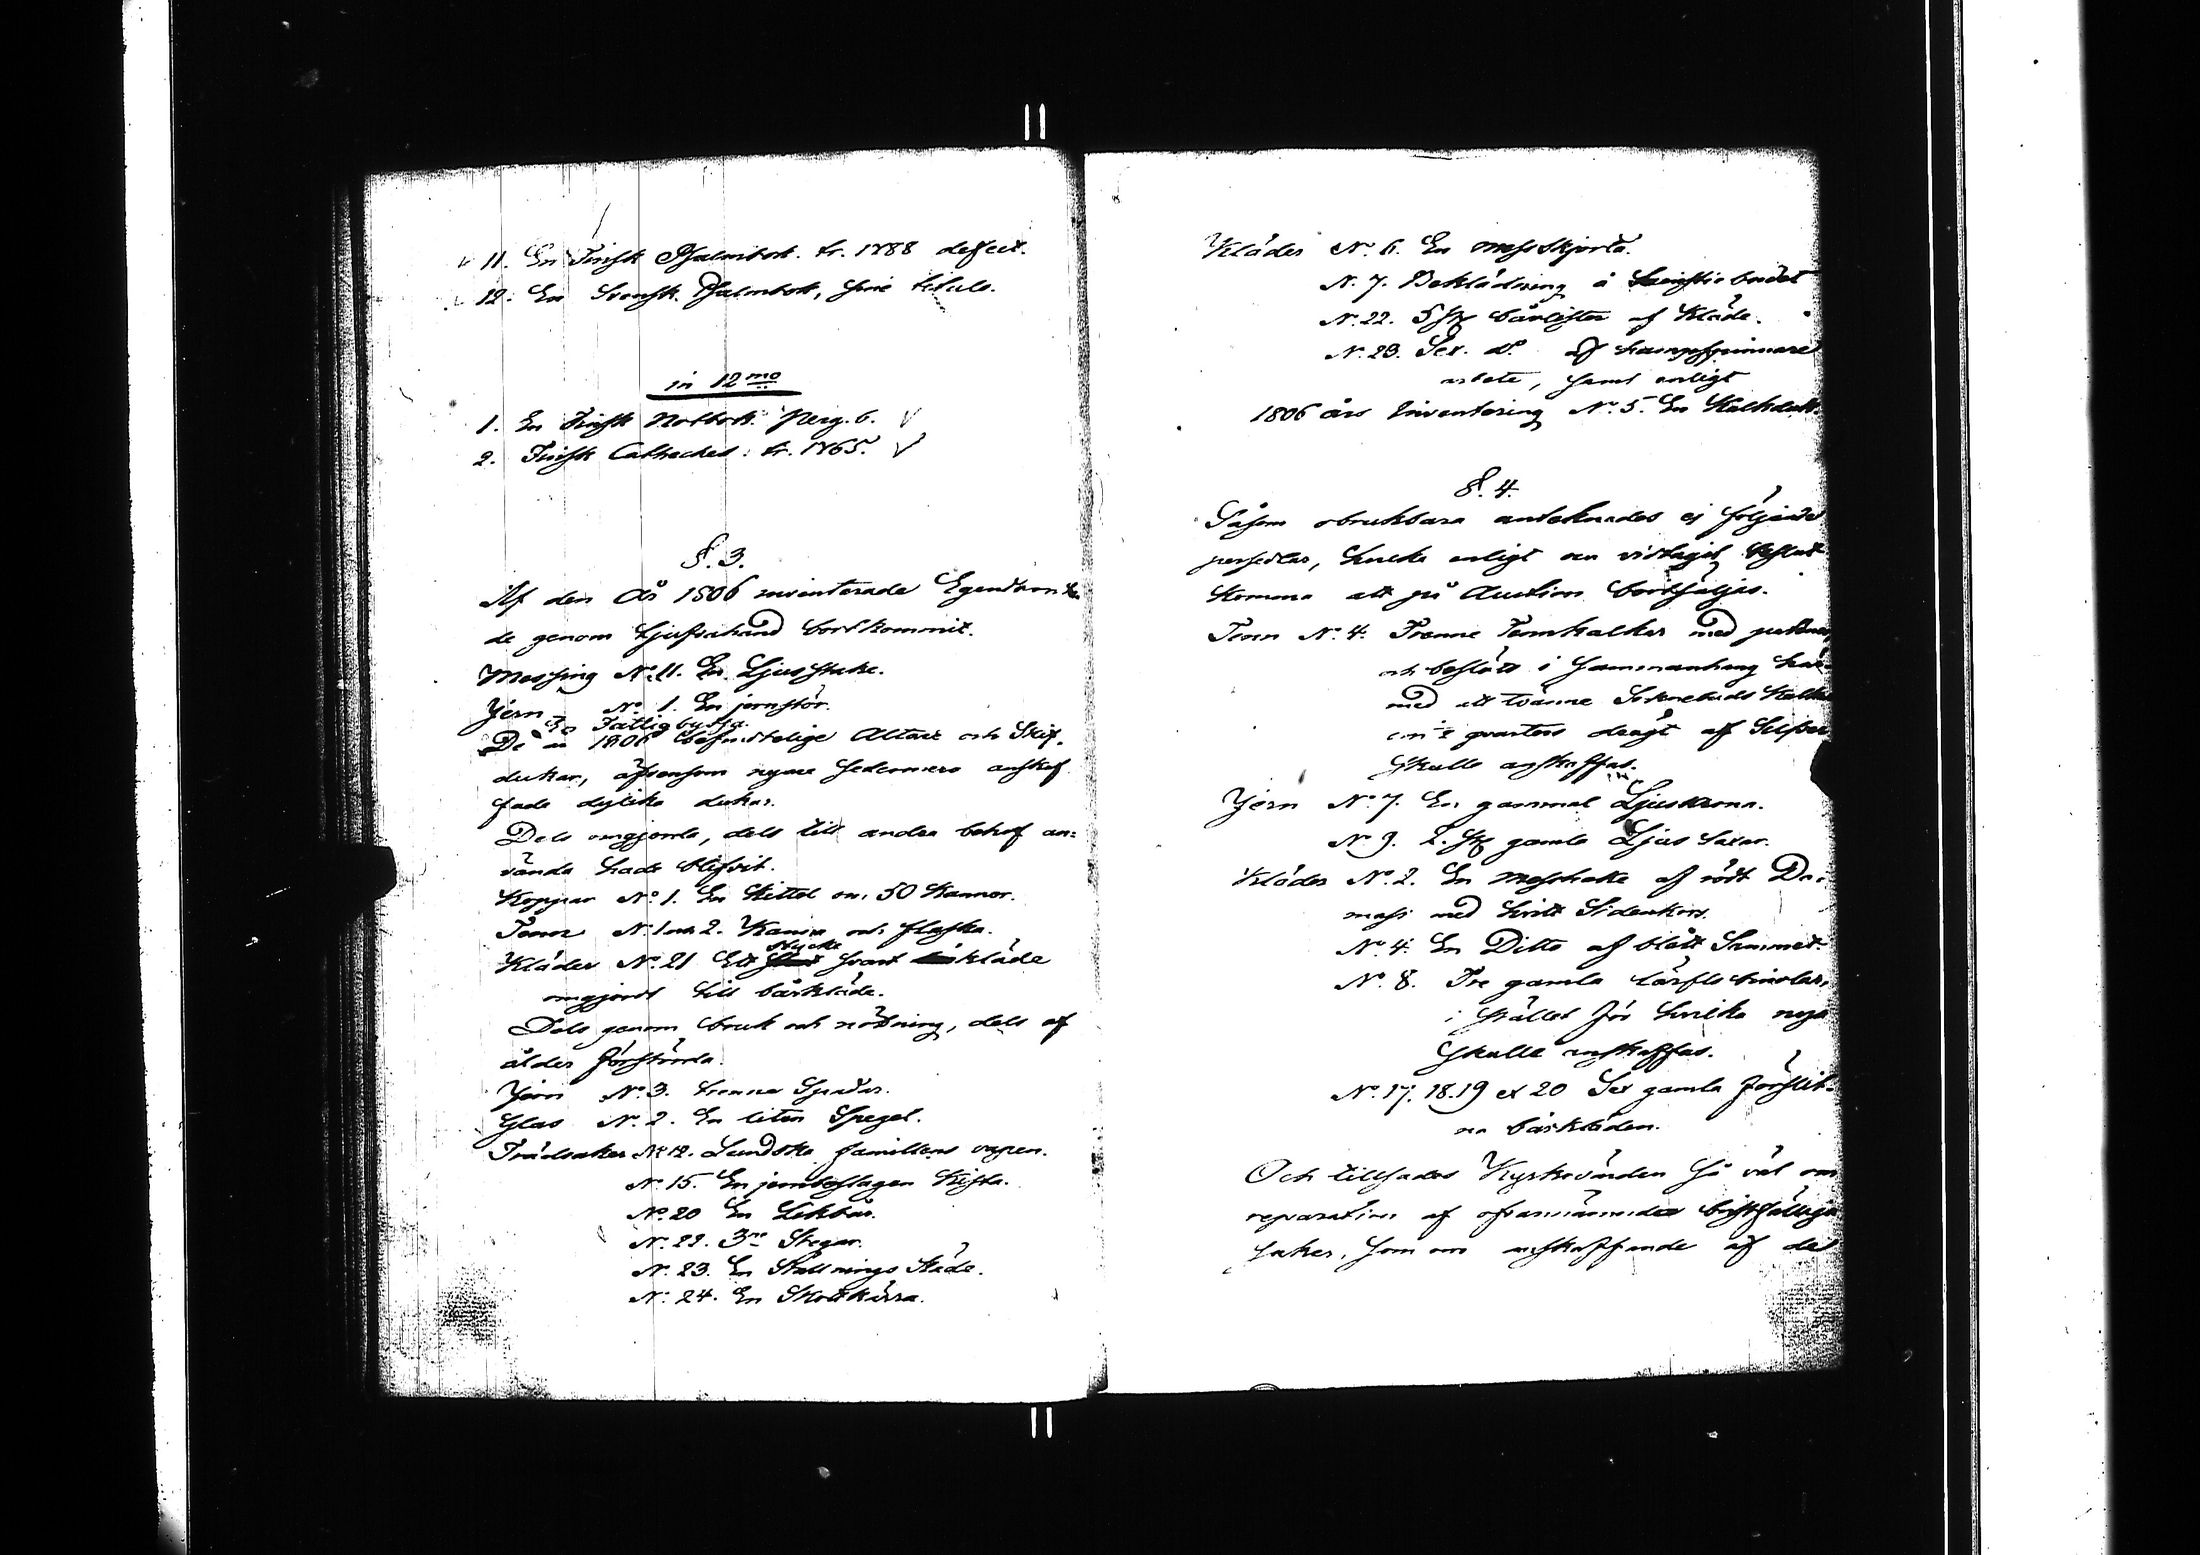 11. En Finsk Psalmbok. tr. 1788 defect.
12. En Svensk. Psalmbok, sine titulo.
in 12mo
1. En Finsk Notbok. Perg. b.
2. Finsk Catheches: tr. 1765.
§. 3.
Af den År 1806 inventerade Egendom
de genom tjufvahand bortkommit.
Messing No. 11. En Ljusstake.
Jern No. 1. En jernstör.
30 Fattigbyssja.
De i 1806 befindtelige Altare och Skif-
dukar, äfvensom nyare sedermera anskaf
fade dylika dukar.
Dels omgjorda, dels till andra behof an=
vända hade blifvit.
Koppar No. 1. En Kittel om 50 Kannor.
Tenn N. 1 och 2. Kanna och flaska.
Kläder No. 21 Ett stycke svart kläde
omgjordt till bårkläde.
Dels genom bruk och nötning, dels af
ålder förstörda.
Jern No. 3. trenne Spadar.
Glas No. 2. En liten Spegel.
Trädsaker No. 12. Lundska familiens vapen.
No. 15. En jernbeslagen Kista.
No. 20 En Likbår.
No. 22. 3ne Stegar.
No. 23. En Ställnings Städe.
No. 24. En Skottkärra.
Kläder No. 6. En messskjorta.
N. 7. Beklädning å bordet
N. 22. 5 st bårlister af Kläde.
N. 23. Sex. do af hampspinnare
arbete, samt enligt
1806 års Inventering No. 5. En Kalkduk.
§. 4.
Såsom obrukbara antecknades ej följande
persedlar, hvilka enligt nu vidtagit beslut
komma att på Auction bortsäljas.
Tenn No. 4. Trenne Tennkalkar med patener,
och beslöts i sammanhang här
med att tvänne Sockenbuds Kalkar
om ½ qvarters dragt af Silfver
skulle anskaffas.
Jern No. 7. En gammal Ljuskrona.
No. 9. 2. st gamla Ljus Saxar.
Kläder No. 2. En messhake af rödt Da=
mast med hvitt Sidenkors.
No. 4. En Ditto af blått Sammet.
No. 8. Tre gamla lärfts
i stället för hvilka nya
skulle anskaffas.
No. 17, 18. 19 et 20 Sex gamla förslit=
na bårkläden.
Och tillsades Kyrkovärden så väl om
reparation af ofvannämnda bristfälliga
saker, som om anskaffande af det